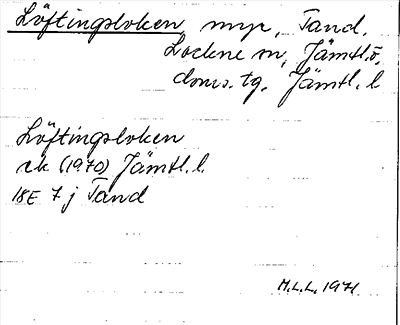 Löftingsloken, myr, Tand.
Lockne sn, Jämtl. ö.
doms. tg. Jämtl. l
Löftingsloken
ek (1970) Jämtl. l.
18E 7 j Tand
M.L.L. 1971